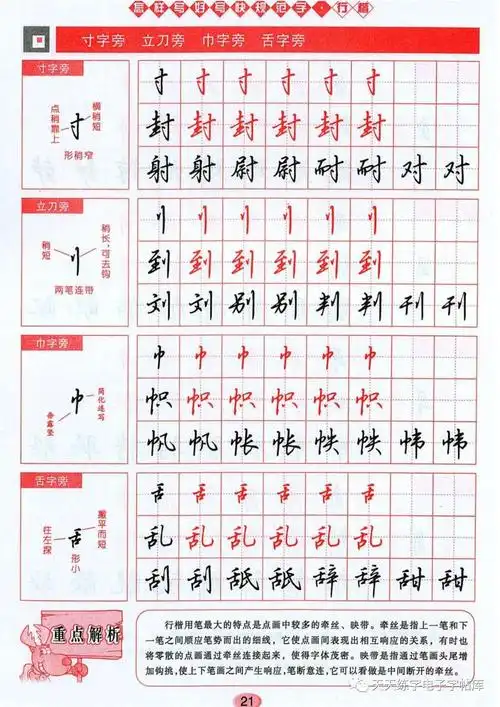 怎样写好写快规范字·行篇
寸字旁 立刀旁 巾字旁 舌字旁
寸字旁
点稍靠上
寸
横稍短
形稍窄
寸 寸 寸 寸 寸 寸
封 封 封 封 封 封
射 射 尉 尉 耐 耐 对 对
立刀旁
稍短
刂
稍长,可去钩
两笔连带
刂 刂 刂 刂 刂 刂
到 到 到 到 到 到
刘 刘 别 别 判 判 刊 刊
巾字旁
垂露竖
巾
简化连写
巾 巾 巾 巾 巾 巾
帜 帜 帜 帜 帜 帜
帆 帆 帐 帐 帙 帙 帏 帏
舌字旁
往左探
舌
撇平而短
形小
舌 舌 舌 舌 舌 舌
乱 乱 乱 乱 乱 乱
刮 刮 舐 舐 辞 辞 甜 甜
重点解析
行楷用笔最大的特点是点画中较多的牵丝、映带。牵丝是指上一笔和下
一笔之间顺应笔势而出的细线，它使点画间表现出相互响应的关系，有时也
将零散的点画通过牵丝连接起来，使得字体茂密。映带是指通过笔画头尾增
加钩挑，使上下笔画之间产生响应，笔断意连，它可以看做是中间断开的牵丝。
天天练字电子字帖库
21